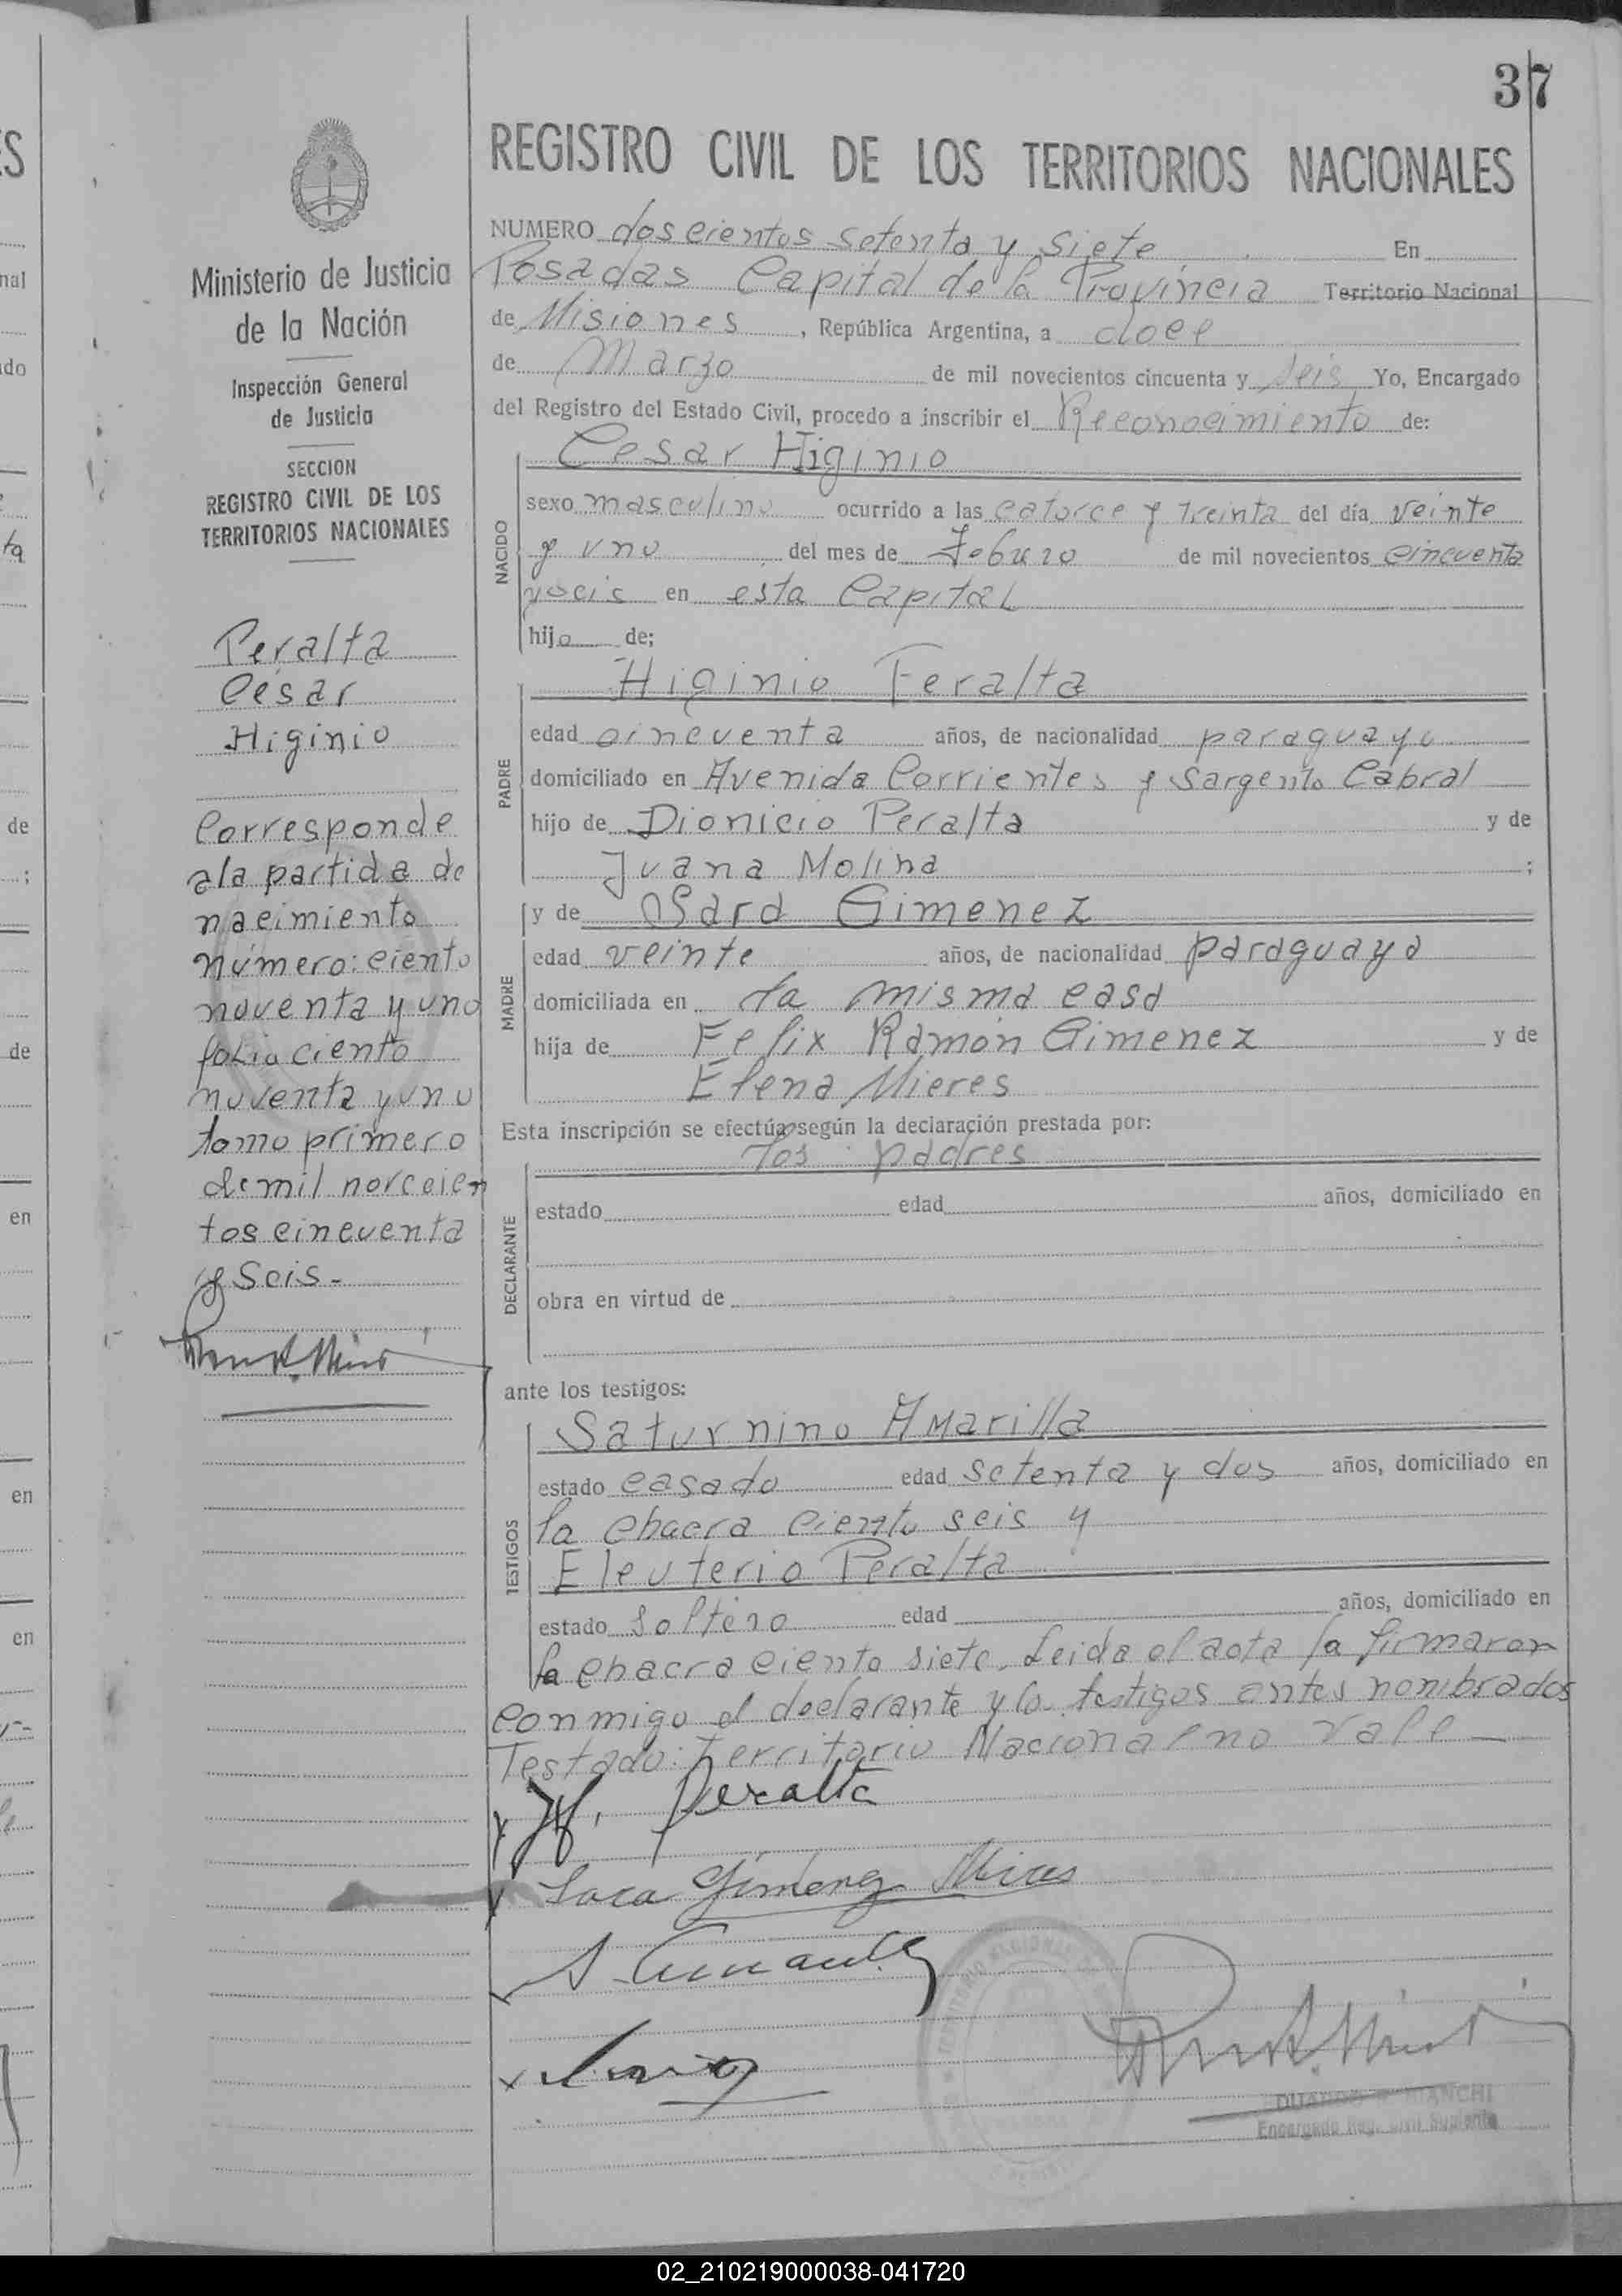 37
REGISTRO CIVIL DE LOS TERRITORIOS NACIONALES
Ministerio de Justicia
de la Nación
Inspección General
de Justicia
SECCION
REGISTRO CIVIL DE LOS
TERRITORIOS NACIONALES
Peralta
César
Higinio
Corresponde
a la partida de
nacimiento
número: ciento
noventa y uno
folio ciento
noventa y uno
tomo primero
de mil novecien
tos cincuenta
y seis.-
NUMERO doscientos setenta y siete En
Posadas Capital de la Provincia Territorio Nacional
de Misiones, República Argentina, a doce
de Marzo de mil novecientos cincuenta y seis Yo, Encargado
del Registro del Estado Civil, procedo a inscribir el Reconocimiento de:
NACIDO
Cesar Higinio
sexo masculino ocurrido a las catorce y treinta del día veinte
y uno del mes de Febrero de mil novecientos cincuenta
y seis en esta Capital
hijo de;
PADRE
Higinio Peralta
edad cincuenta años, de nacionalidad paraguayo
domiciliado en Avenida Corrientes y Sargento Cabral
hijo de Dionicio Peralta y de
Juana Molina ;
MADRE
y de Sara Gimenez
edad veinte años, de nacionalidad paraguaya
domiciliada en la misma casa
hija de Felix Ramón Gimenez y de
Elena Mieres
Esta inscripción se efectúa según la declaración prestada por:
DECLARANTE
los padres
estado edad años, domiciliado en
obra en virtud de
ante los testigos:
TESTIGOS
Saturnino Amarilla
estado casado edad setenta y dos años, domiciliado en
la chacra ciento seis y
Eleuterio Peralta
estado soltero edad años, domiciliado en
la chacra ciento siete. Leida el acta la firmaron
conmigo el declarante y los testigos antes nombrados
Testado: Territorio Nacional no vale
H. Peralta
Sara Gimenez Mieres
Encargado Reg. Civil Suplente
02_210219000038-041720